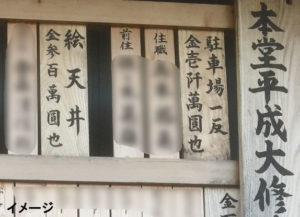 本堂平成大修
駐車場一反
金壱阡萬圓也
住職
前住
絵天井
金参百萬圓也
金
イメージ